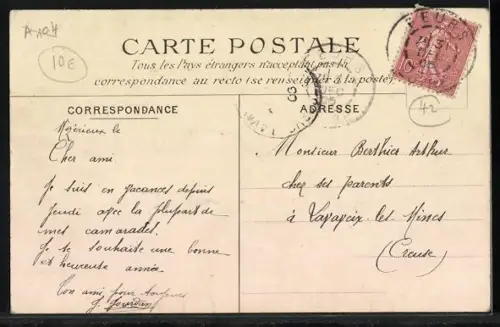 10€
CARTE POSTALE
Tous les Pays étrangers n'acceptant pas la
correspondance au recto (se renseigner à la poste)
FEURS
CORRESPONDANCE
ADRESSE
42
Mizérieux le
Cher ami
Je suis en vacances depuis
jeudi avec la plupart de
mes camarades.
Je te souhaite une bonne
et heureuse année.
Ton ami pour toujours
J. Jourdan
Monsieur Berthier Arthur
chez ses parents
à Lavaveix-les-Mines
(Creuse)